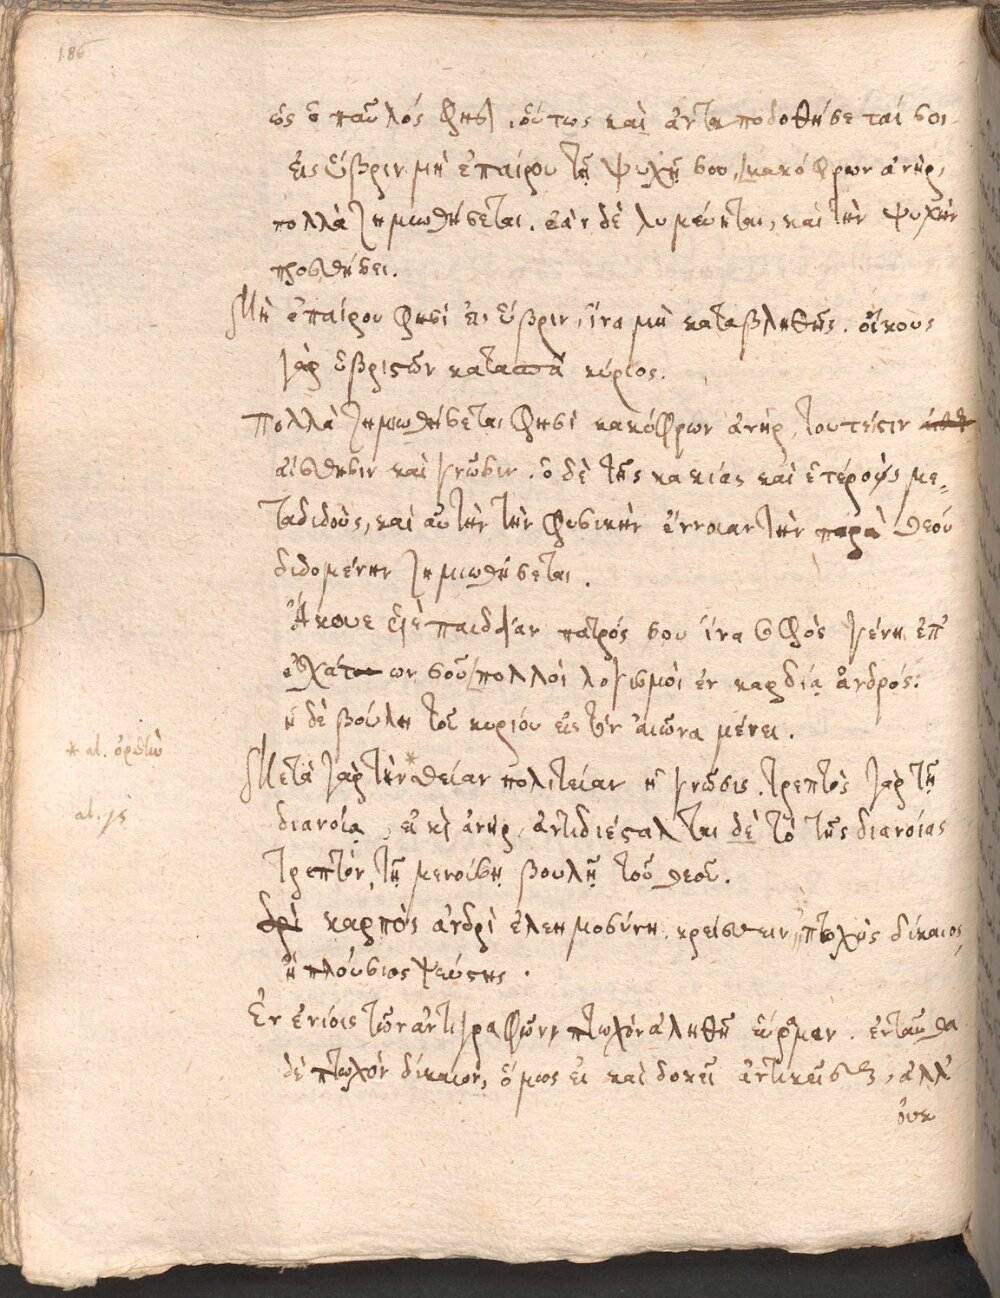 186
ὡς ὁ παῦλός φησι, οὕτως καὶ ἀνταποδοθήσεταί σοι.
εἰς ὕβριν μὴ ἐπαίρου τῇ ψυχῇ σου, κακόφρων ἀνὴρ,
πολλὰ ζημιωθήσεται. ἐὰν δὲ λυμεύηται, καὶ τὴν ψυχὴν
προσθήσει.
Μὴ ἐπαίρου φησὶ εἰς ὕβριν, ἵνα μὴ καταβληθῇς. οἴκους
γὰρ ὑβριστῶν κατασπᾷ κύριος.
πολλὰ ζημιωθήσεται φησὶ κακόφρων ἀνὴρ, τουτέστιν
αἴσθησιν καὶ γνῶσιν. ὁ δὲ τῆς κακίας καὶ ἑτέροις με-
ταδιδοὺς, καὶ αὐτὴν τὴν φυσικὴν ἔννοιαν τὴν παρὰ θεοῦ
διδομένην ζημιωθήσεται.
Ἄκουε υἱὲ παιδείαν πατρός σου ἵνα σοφὸς γένῃ ἐπ'
ἐσχάτων σοῦ πολλοὶ λογισμοὶ ἐν καρδίᾳ ἀνδρός:
ἡ δὲ βουλὴ τοῦ κυρίου εἰς τὸν αἰῶνα μένει.
* al. ὀρθὴν
Μετὰ γὰρ τὴν* θείαν πολιτείαν ἡ γνῶσις. τρεπτὸς γὰρ τῇ
al. γὰρ
διανοίᾳ, εἰ καὶ ἀνὴρ, ἀντιδιέσταλται δὲ τὸ τῆς διανοίας
τρεπτὸν, τῇ μενούσῃ βουλῇ τοῦ θεοῦ.
δρὶ καρπὸς ἀνδρὶ ἐλεημοσύνη. κρείσσων πτωχὸς δίκαιος,
ἢ πλούσιος ψεύστης.
Ἐν ἐνίοις τῶν ἀντιγράφων, πτωχὸν ἀληθῆ εὕρομεν. ἐνταῦθα
δὲ πτωχὸν δίκαιον, ὅμως εἰ καὶ δοκεῖ ἀντικεῖσθαι, ἀλλ'
οὐκ